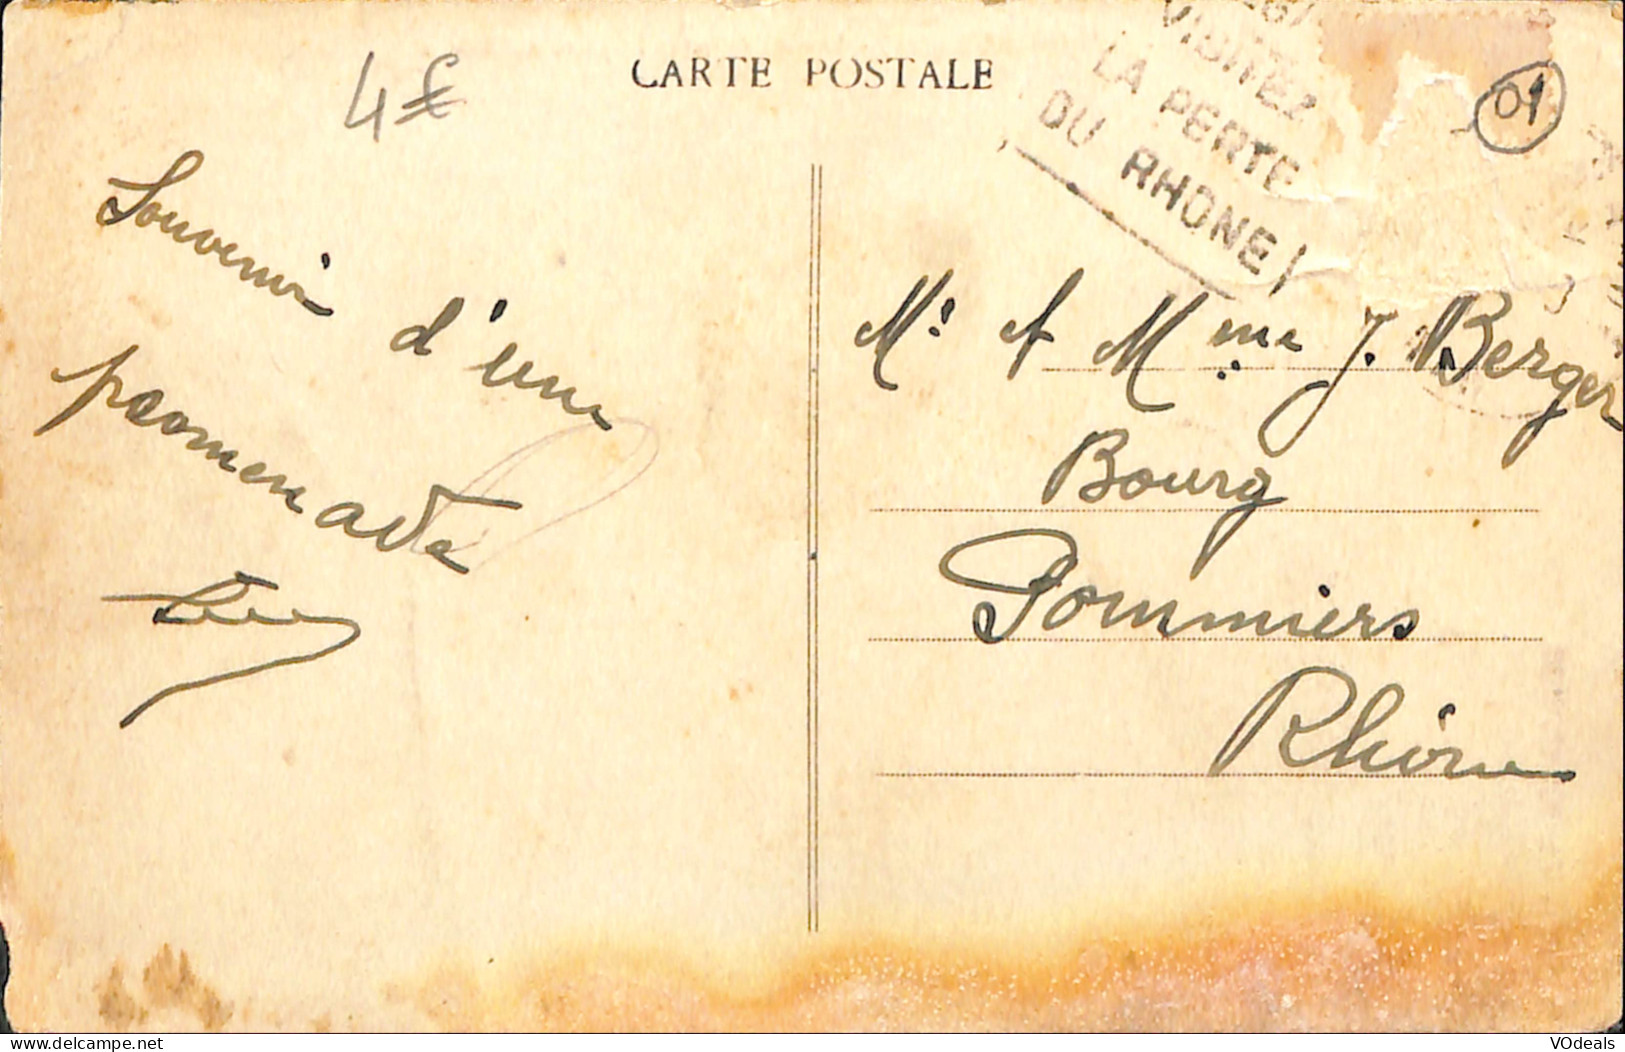 CARTE POSTALE
VISITEZ
LA PERTE
DU RHONE!
01
4€
Souvenir
d'une
promenade
Mr et Mme J. Berger
Bourg
Pommiers
Rhône
VOdeals